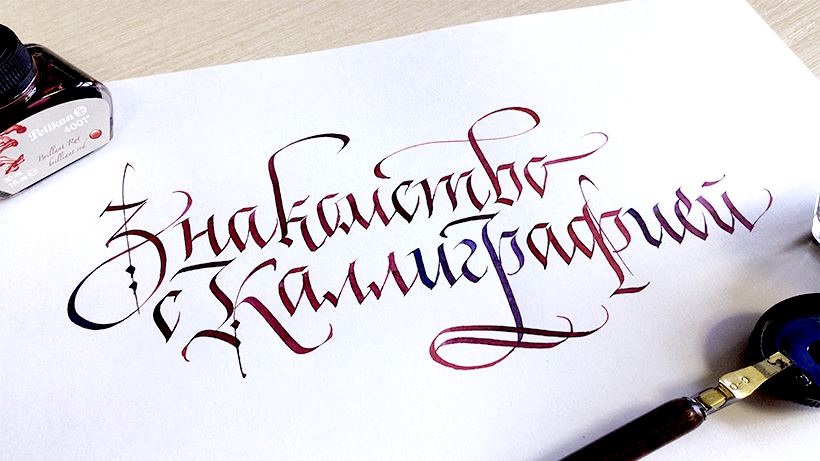 Pelikan
4001
Brillant-Rot
brilliant red
Знакомство
с Каллиграфией